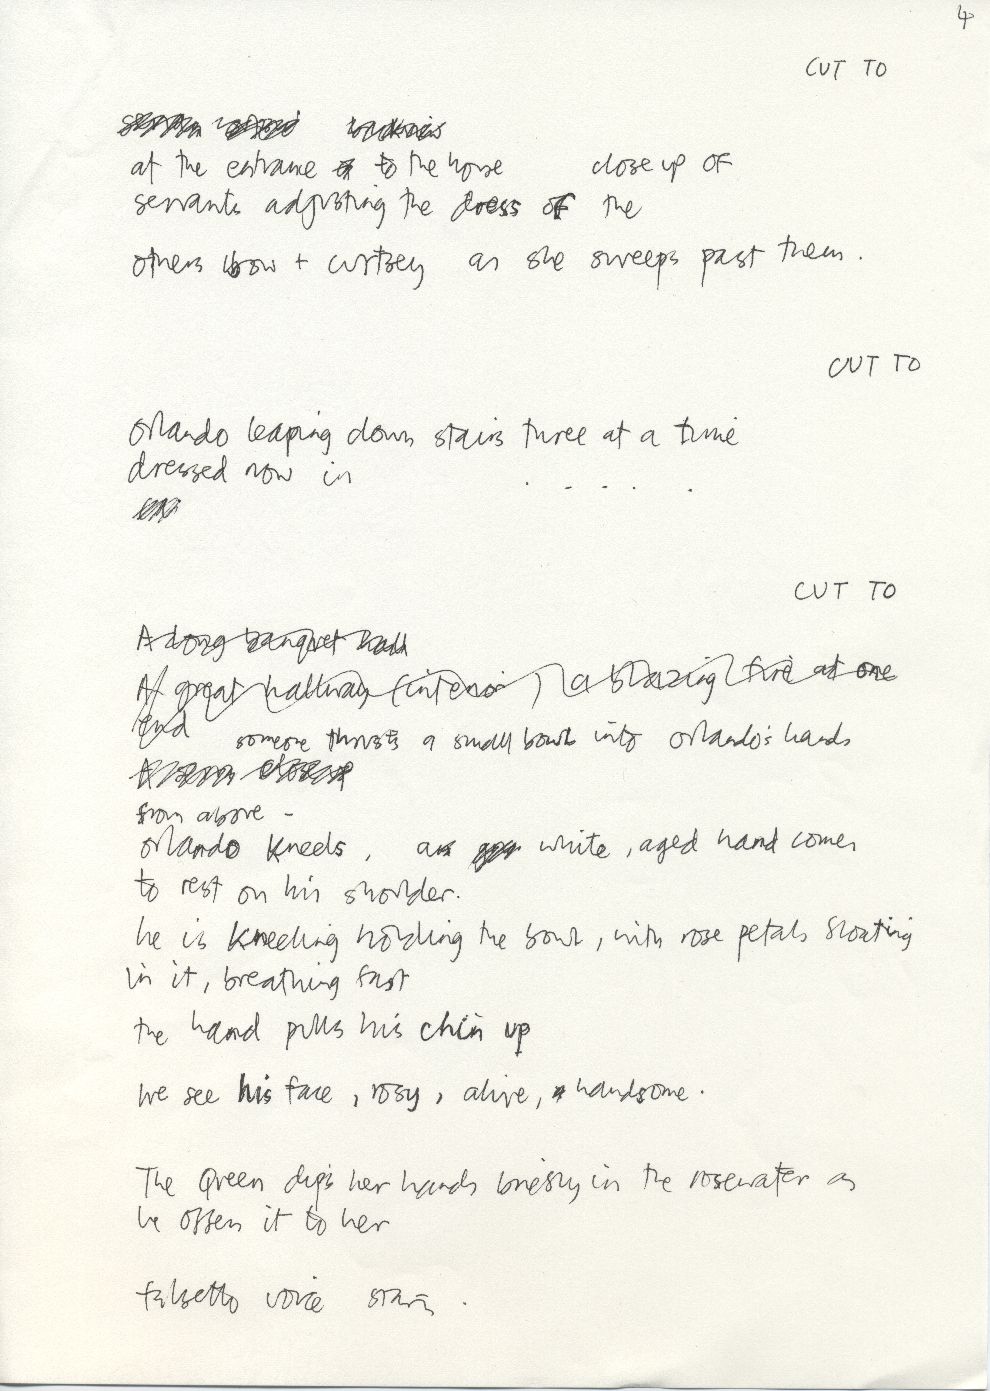 4
CUT TO
at the entrance to the house close up of
servants adjusting the dress of the
others bow + curtsey as she sweeps past them.
CUT TO
Orlando leaping down stairs three at a time
dressed now in . . . . .
CUT TO
A long banquet hall
A great hallway (interior) a blazing fire at one
end someone thrusts a small bowl into Orlando's hands
from above -
Orlando kneels, a white, aged hand comes
to rest on his shoulder.
he is kneeling holding the bowl, with rose petals floating
in it, breathing fast
the hand pulls his chin up
we see his face, rosy, alive, handsome.
The Queen dips her hands briefly in the rosewater as
he offers it to her
falsetto voice starts.